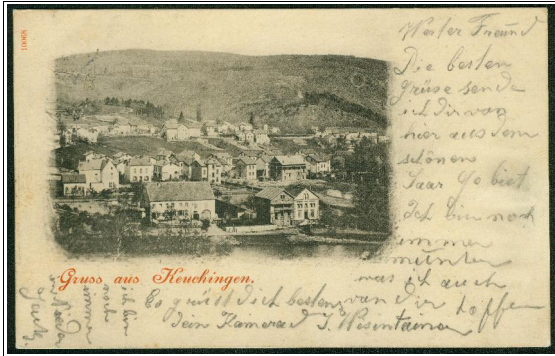 10068
Werter Freund
Die besten
grüse sende
ich dir von
hier aus dem
schönen
Saar Gebiet
Ich bin noch
immer
munter
was ich auch
von dir hoffen
Gruss aus Keuchingen.
Es grüßt dich bestens
dein Kamerad J.
ich bin
noch
immer